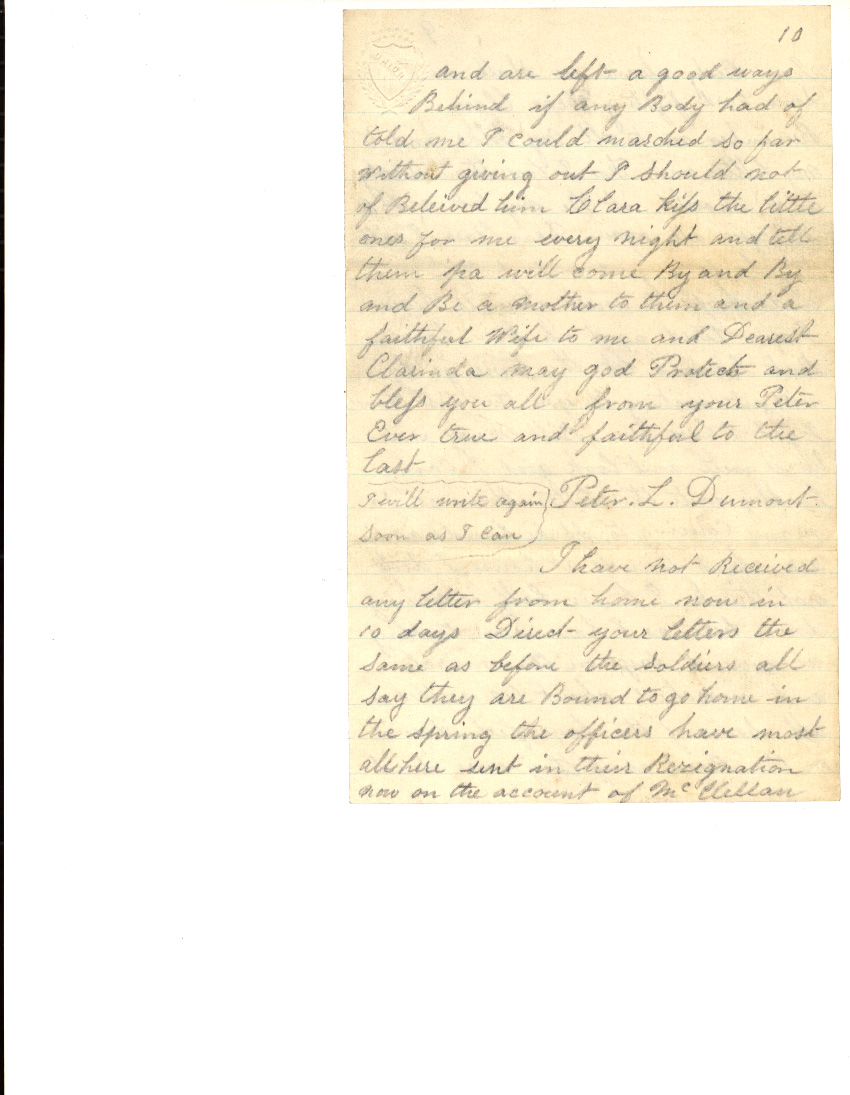 10
UNION
and are left a good ways
Behind if any Body had of
told me I could marched so far
without giving out I should not
of Beleived him Clara kifs the little
ones for me every night and tell
them pa will come By and By
and Be a mother to them and a
faithful Wife to me and Dearest
Clarinda may god Protect and
blefs you all from your Peter
Ever true and faithful to the
last
I will write again Peter. L. Dumont.
soon as I can
I have not Received
any letter from home now in
10 days Direct your letters the
same as before the soldiers all
say they are Bound to go home in
the spring the officers have most
all here sent in their Rezignation
now on the account of McClellan